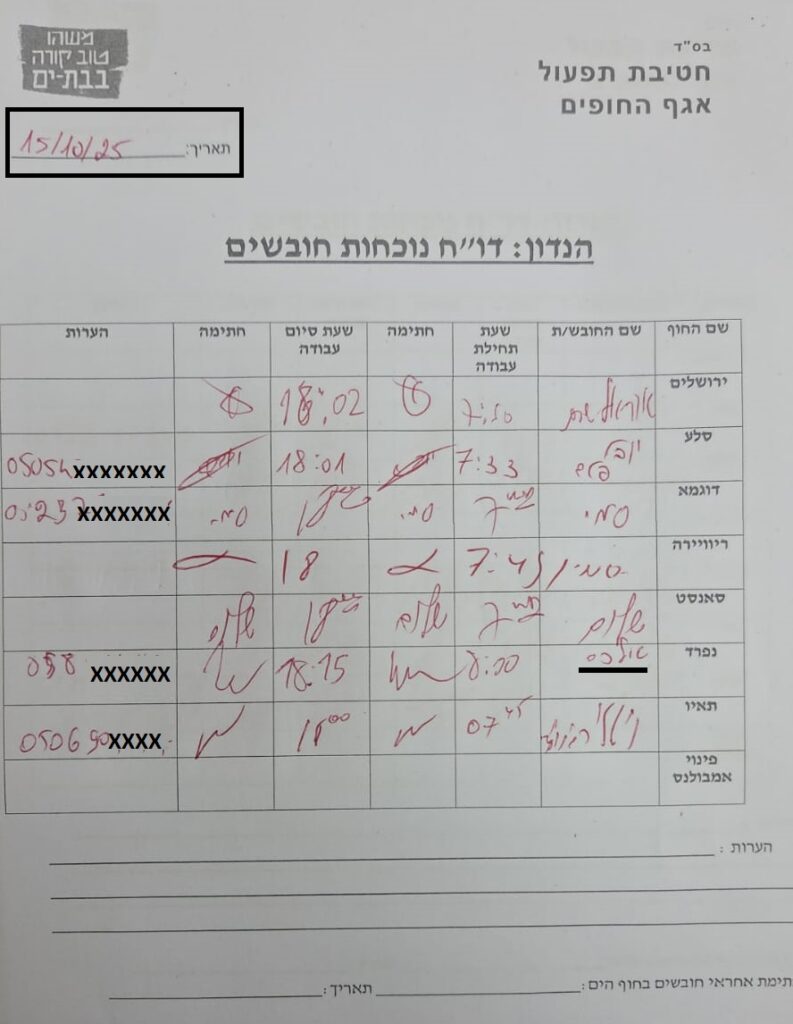 משהו
טוב קורה
בבת-ים
בס"ד
חטיבת תפעול
אגף החופים
תאריך: 15/10/25
הנדון: דו"ח נוכחות חובשים
שם החוף שם החובש/ת שעת תחילת עבודה חתימה שעת סיום עבודה חתימה הערות
ירושלים 7:50 18:02
סלע יובל 7:33 18:01 05054xxxxxxx
דוגמא סמי סמי סמי xxxxxxx
ריוויירה 7:45 18
סאנסט שלום שלום שלום
נפרד 8:00 18:15 xxxxxx
תאיו 07 45 18 00 050690xxxx
פינוי אמבולנס
הערות :
תימת אחראי חובשים בחוף הים: תאריך: